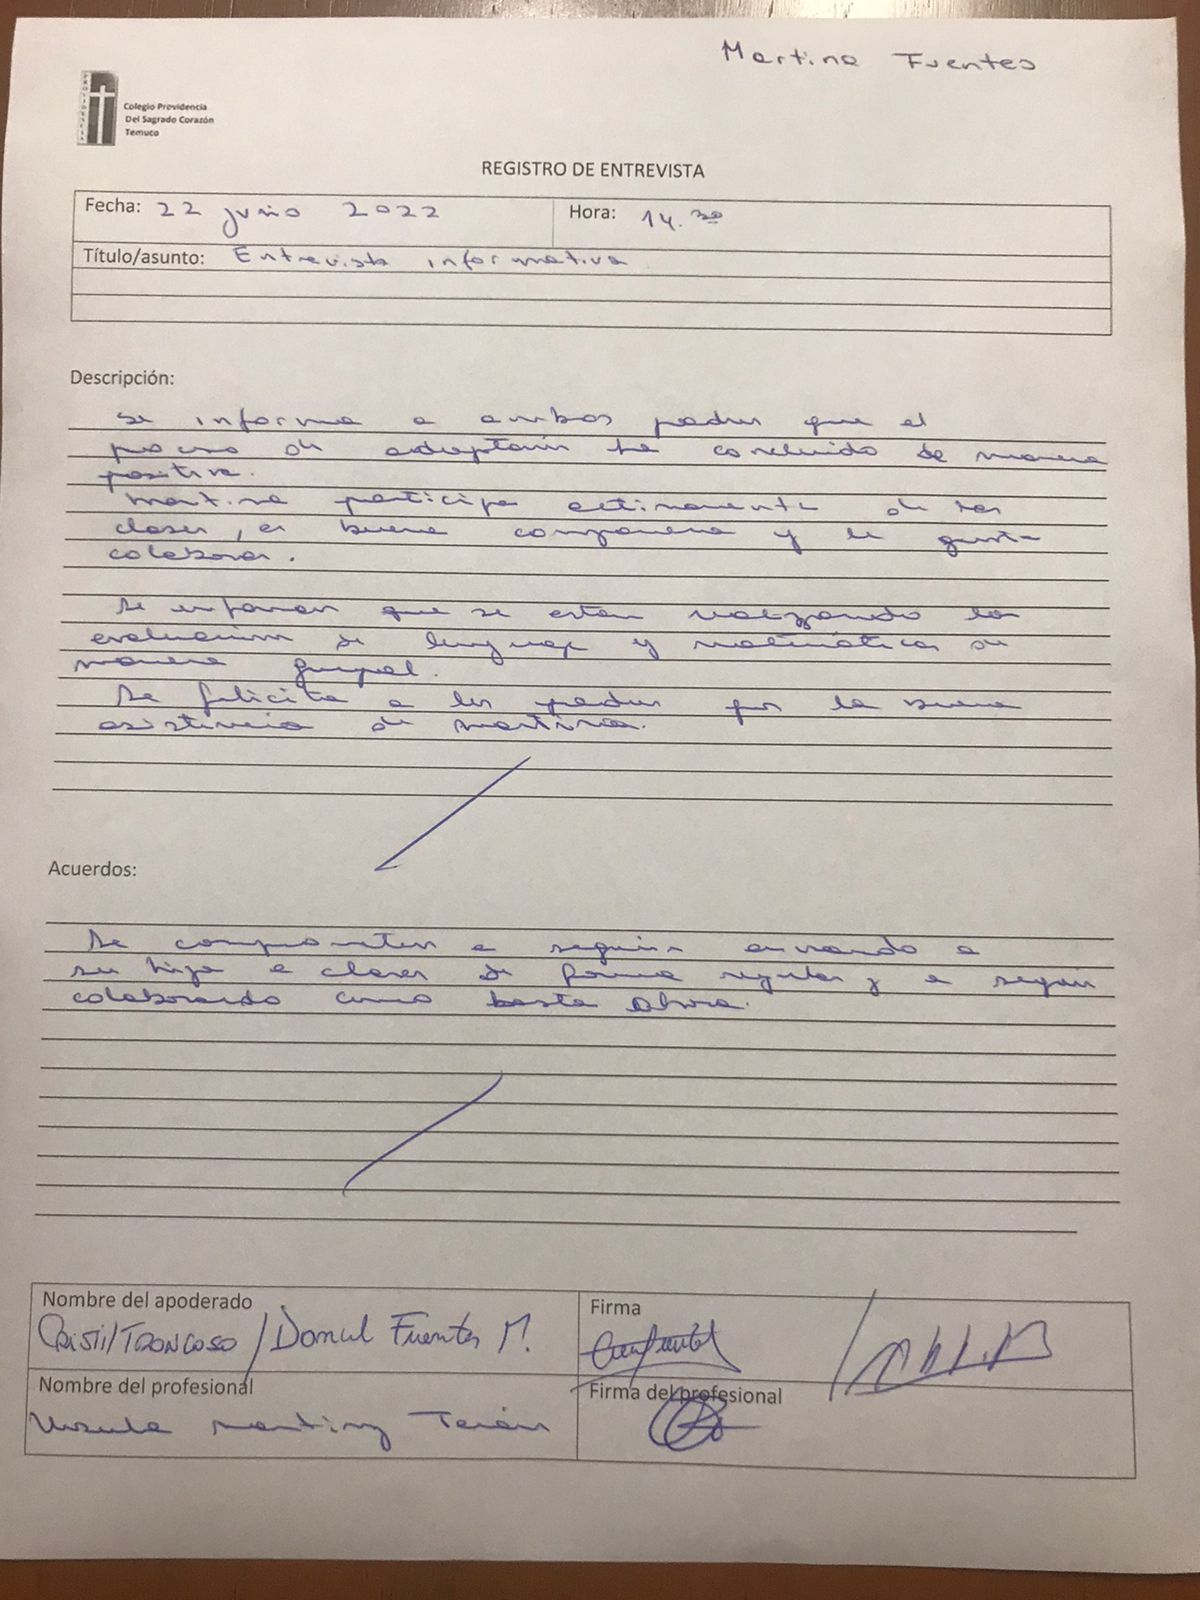 Martina Fuentes
PROVIDENCIA
Colegio Providencia
Del Sagrado Corazón
Temuco
REGISTRO DE ENTREVISTA
Fecha: 22 junio 2022 Hora: 14.30
Título/asunto: Entrevista informativa
Descripción:
Se informa a ambos padres que el
proceso de adaptación ha concluido de manera
positiva.
Martina participa activamente de las
clases, es buena compañera y le gusta
colaborar.
Se informan que se están realizando las
evaluaciones de lenguaje y matemáticas de
manera grupal.
Se felicita a los padres por la buena
asistencia de Martina.
Acuerdos:
Se comprometen a seguir enviando a
su hija a clases de forma regular y a seguir
colaborando como hasta ahora.
Nombre del apoderado Firma
/ Fuentes M.
Nombre del profesional Firma del profesional
Ursula